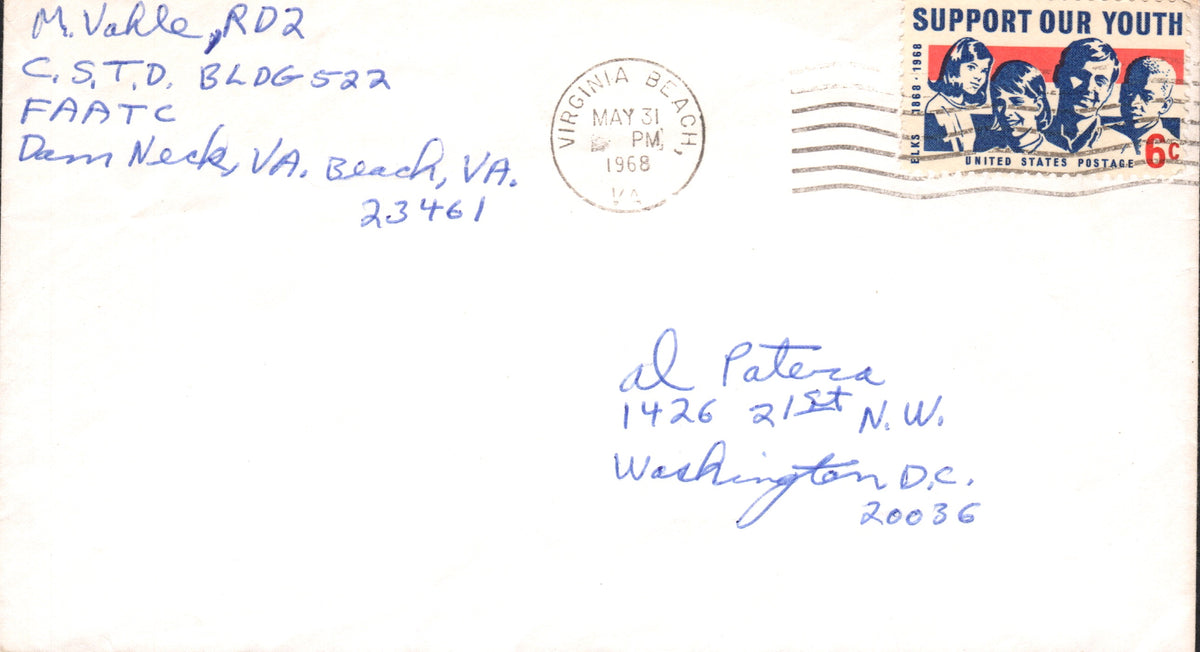 M. Vahle, RD2
C.S.T.D. BLDG 522
FAATC
Dam Neck, VA. Beach, VA.
23461
VIRGINIA BEACH,
MAY 31
PM
1968
VA
SUPPORT OUR YOUTH
ELKS 1868·1968
UNITED STATES POSTAGE 6c
al Patera
1426 21st N.W.
Washington D.C.
20036